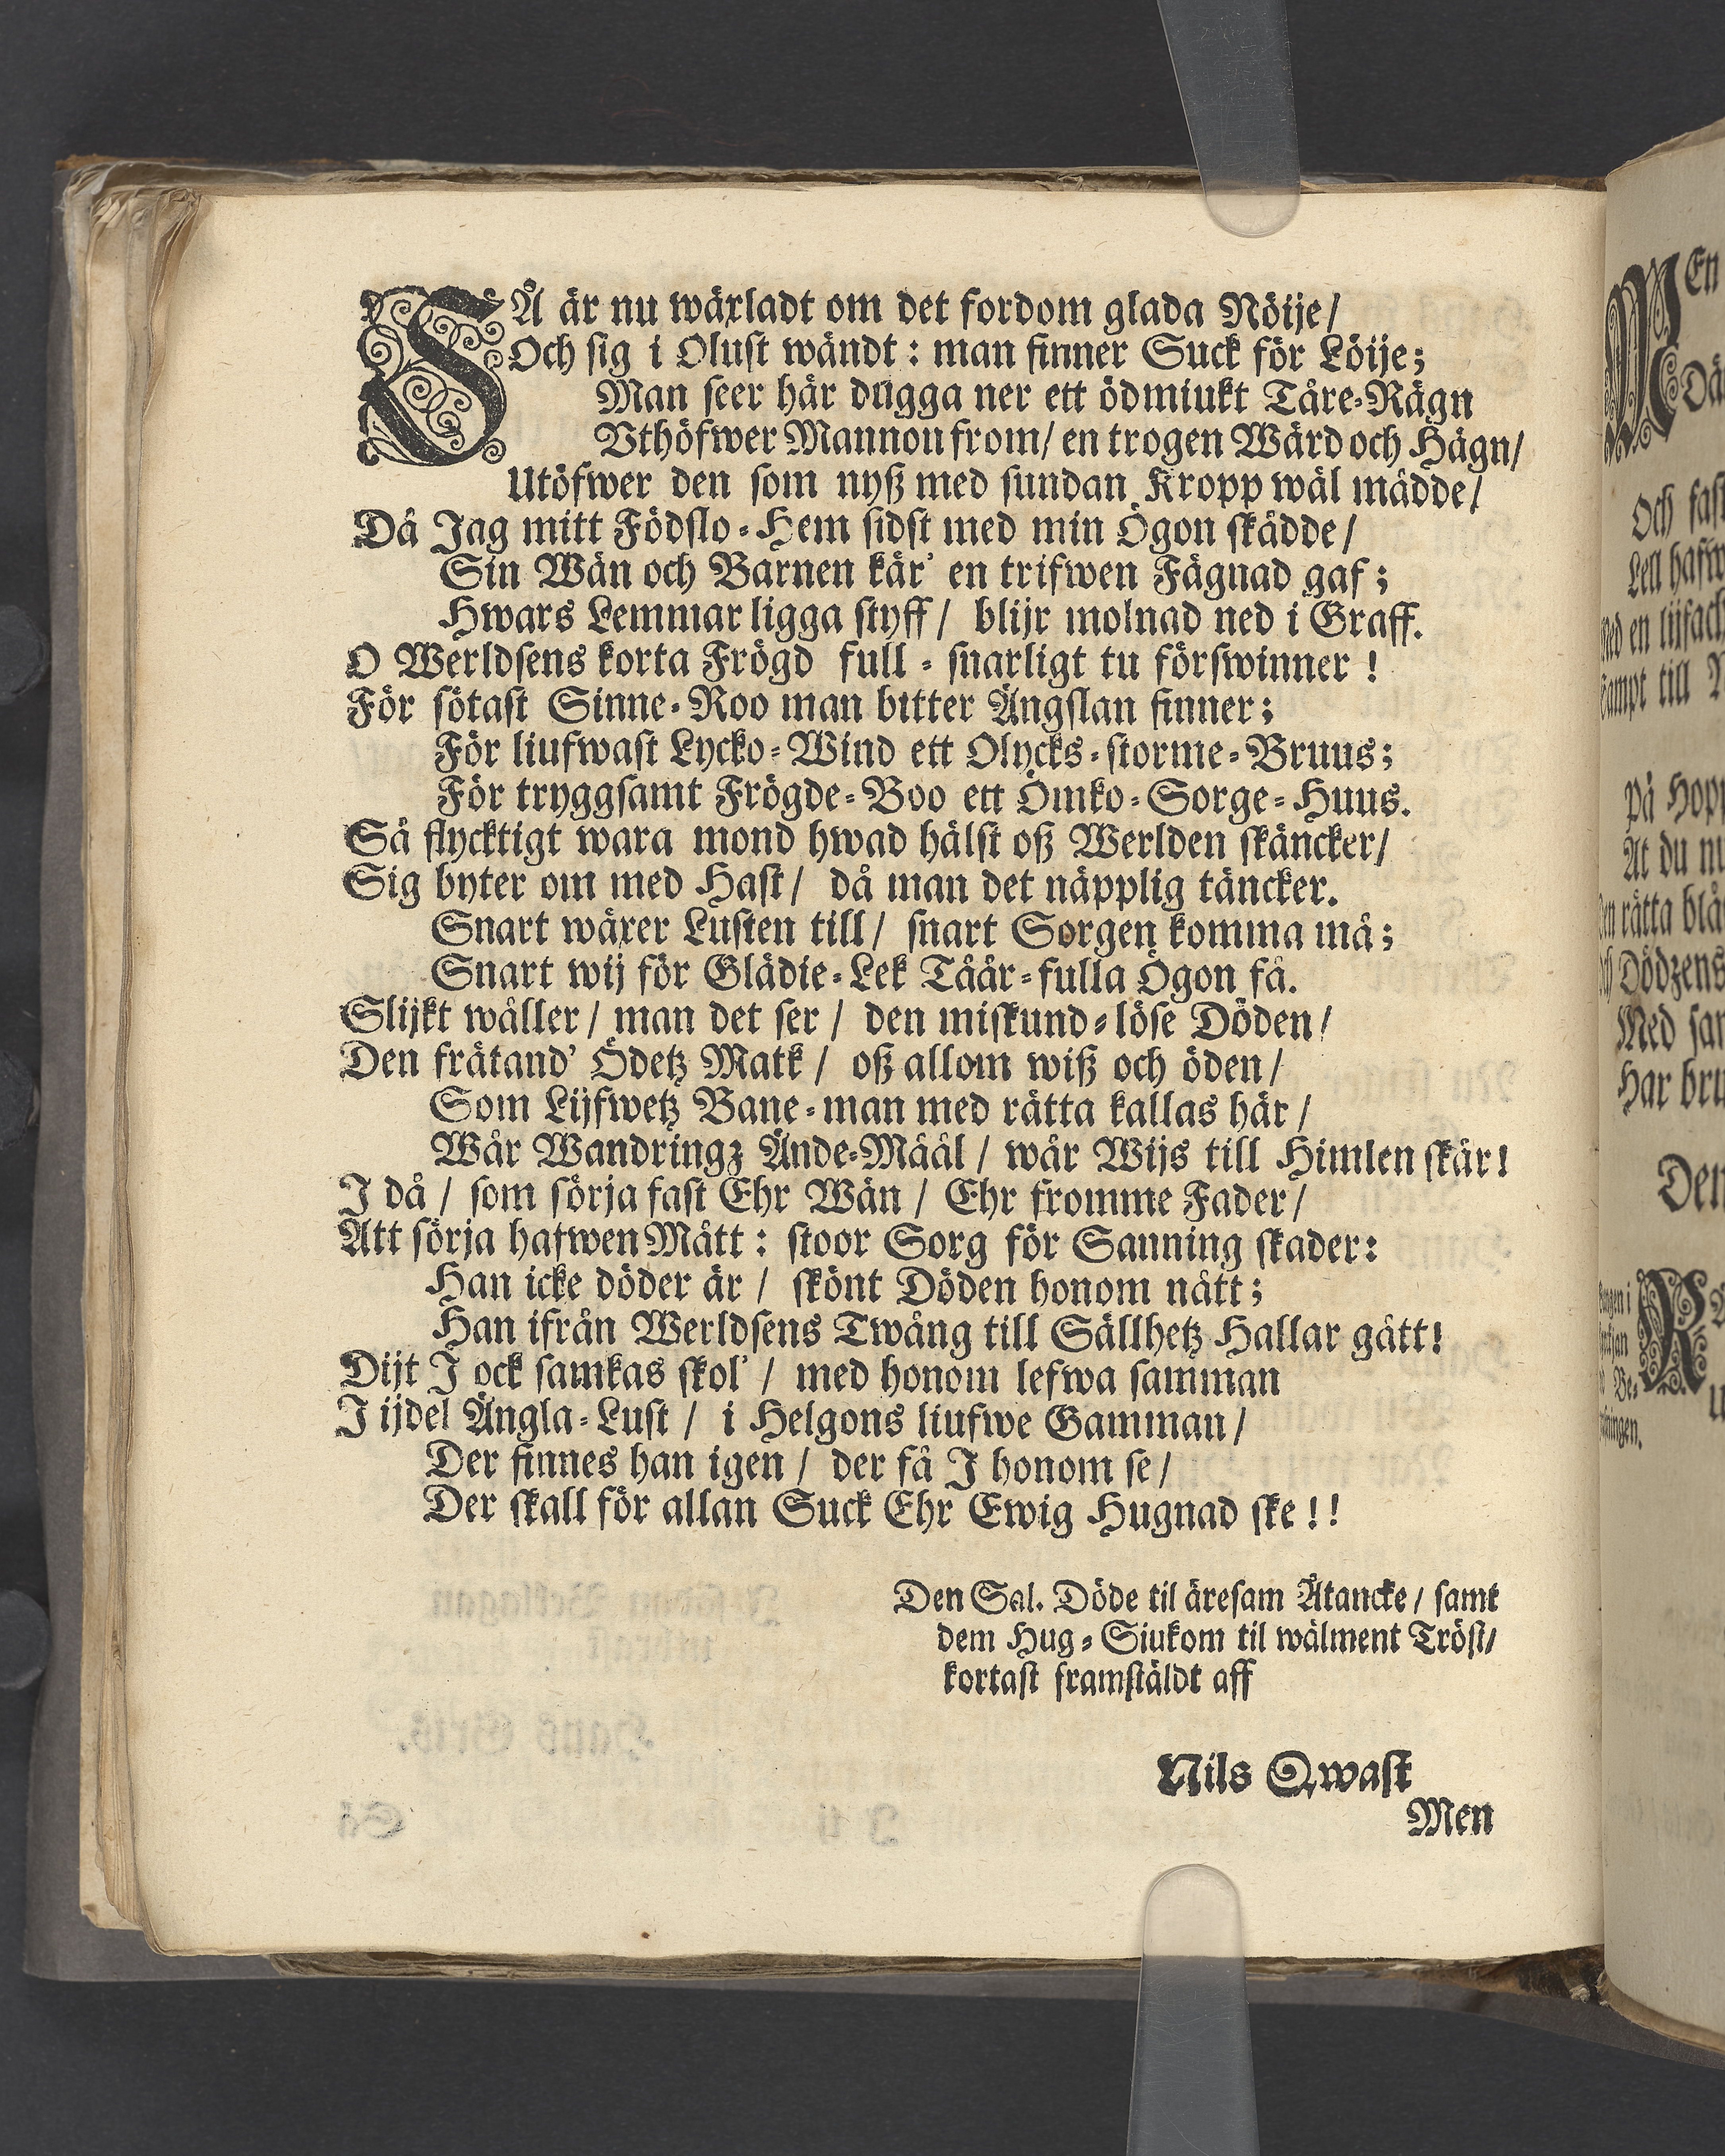 SÅ är nu wäxladt om det fordom glada Nöije/
Och sig i Olust wändt: man finner Suck för Löije;
Man seer här dugga ner ett ödmiukt Tåre-Rägn
Vthöfwer Mannon from/ en trogen Wård och Hägn/
Utöfwer den som nyß med sundan Kropp wäl mådde/
Då Jag mitt Födslo-Hem sidst med min Ögon skådde/
Sin Wän och Barnen kär' en trifwen Fägnad gaf;
Hwars Lemmar ligga styff/ blijr molnad ned i Graff.
O Werldsens korta Frögd full-snarligt tu förswinner!
För sötast Sinne-Roo man bitter Ängslan finner;
För liufwast Lycko-Wind ett Olycks-storme-Bruus;
För tryggsamt Frögde-Boo ett Ömko-Sorge-Huus.
Så flycktigt wara mond hwad hälst oß Werlden skäncker/
Sig byter om med Hast/ då man det näpplig täncker.
Snart wäxer Lusten till/ snart Sorgen komma må;
Snart wij för Glädie-Lek Tåår-fulla Ögon få.
Slijkt wåller/ man det ser/ den miskund-löse Döden/
Den frätand' Ödetz Matk/ oß allom wiß och öden/
Som Lijfwetz Bane-man med rätta kallas här/
Wår Wandringz Ände-Måål/ wår Wijs till Himlen skär!
I då/ som sörja fast Ehr Wän/ Ehr fromme Fader/
Att sörja hafwen Mått: stoor Sorg för Sanning skader:
Han icke döder är/ skönt Döden honom nått;
Han ifrån Werldsens Twång till Sällhetz Hallar gått!
Dijt I ock samkas skol'/ med honom lefwa samman
I ijdel Ängla-Lust/ i Helgons liufwe Gamman/
Der finnes han igen/ der få I honom se/
Der skall för allan Suck Ehr Ewig Hugnad ske!!
Den Sal. Döde til äresam Åtancke/ samt
dem Hug-Siukom til wälment Tröst/
kortast framstäldt aff
Nils Qwast
Men
MEn
Och
en
till
På
At du
rätta
Dödzens
Med
Har
Den